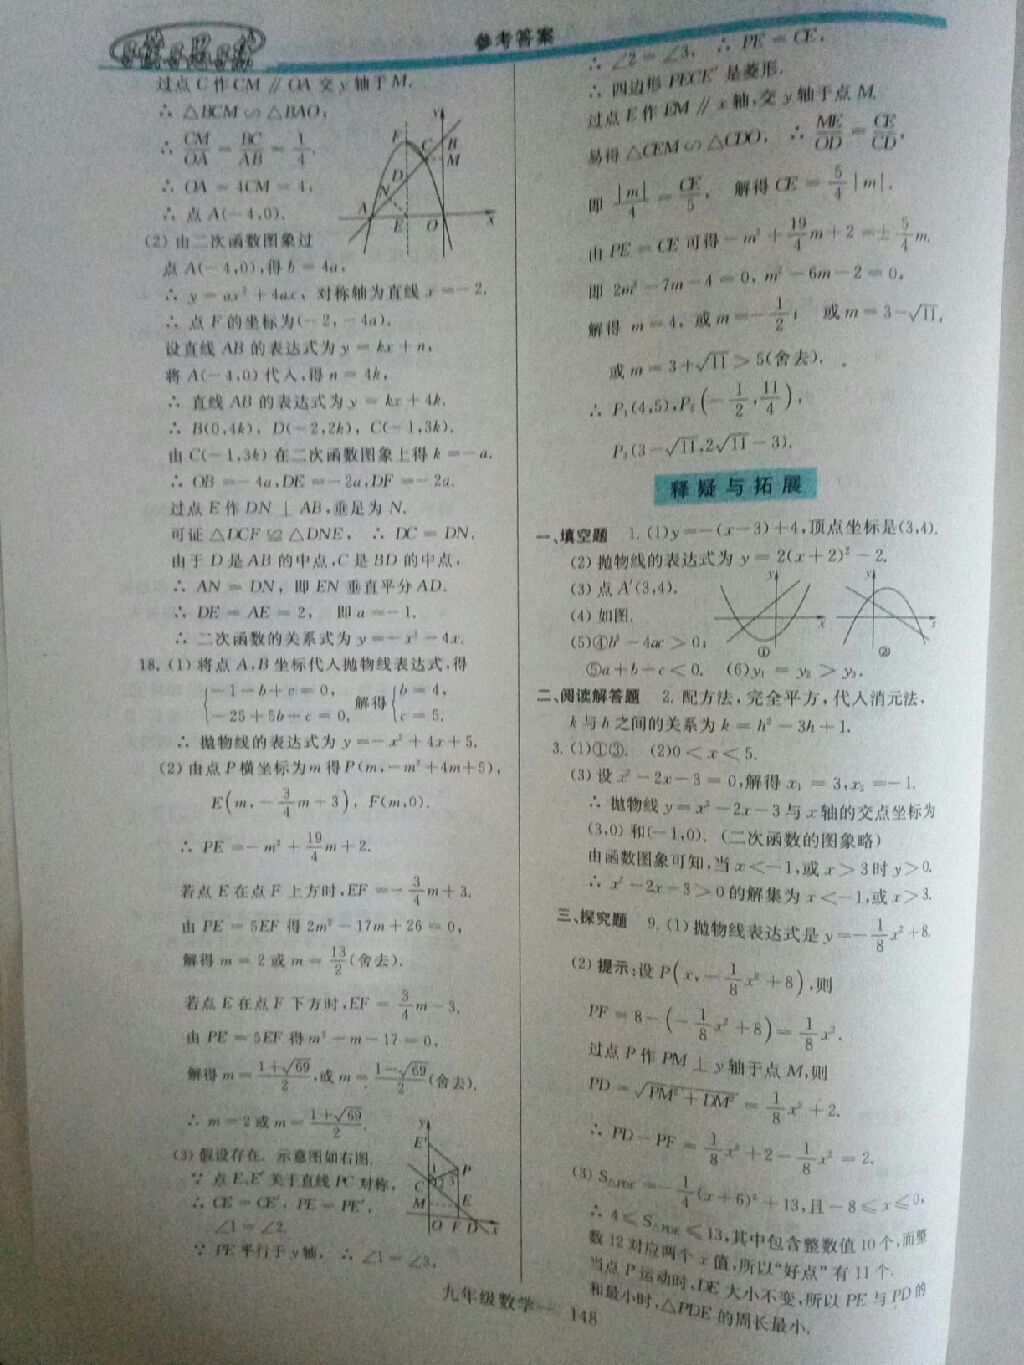 参考答案
过点C作CM∥OA交y轴于M.
∴ △BCM∽△BAO,
∴ CM/OA = BC/AB = 1/4.
∴ OA = 4CM = 4,
∴ 点A(-4,0).
(2) 由二次函数图象过
点A(-4,0),得b = 4a,
∴ y = ax²+4ax, 对称轴为直线 x = -2.
∴ 点F的坐标为(-2,-4a).
设直线AB的表达式为y = kx+n,
将A(-4,0)代入,得n = 4k,
∴ 直线AB的表达式为y = kx+4k.
∴ B(0,4k), D(-2,2k), C(-1,3k).
由C(-1,3k)在二次函数图象上得k = -a.
∴ OB = -4a,DE = -2a,DF = -2a.
过点E作DN ⊥ AB,垂足为N.
可证△DCF≌△DNE, ∴ DC = DN.
由于D是AB的中点,C是BD的中点,
∴ AN = DN, 即EN垂直平分AD.
∴ DE = AE = 2, 即a = -1.
∴ 二次函数的关系式为y = -x²-4x.
18. (1) 将点A,B坐标代入抛物线表达式,得
{-1-b+c = 0, -25+5b+c = 0, 解得{b = 4, c = 5.
∴ 抛物线的表达式为y = -x²+4x+5.
(2) 由点P横坐标为m得P(m,-m²+4m+5),
E(m,-3/4m+3), F(m,0).
∴ PE = -m²+19/4m+2.
若点E在点F上方时,EF = -3/4m+3.
由PE = 5EF得2m²-17m+26 = 0,
解得m = 2或m = 13/2(舍去).
若点E在点F下方时,EF = 3/4m-3.
由PE = 5EF得m²-m-17 = 0,
解得m = (1+√69)/2,或m = (1-√69)/2(舍去).
∴ m = 2或m = (1+√69)/2.
(3) 假设存在. 示意图如右图.
∵ 点E,E′关于直线PC对称,
∴ CE = CE′, PE = PE′,
∠1 = ∠2.
∵ PE平行于y轴, ∴ ∠1 = ∠3,
∴ ∠2 = ∠3, ∴ PE = CE,
∴ 四边形PECE′是菱形.
过点E作EM∥x轴,交y轴于点M.
易得△CEM∽△CDO, ∴ ME/OD = CE/CD,
即 |m|/4 = CE/5, 解得CE = 5/4|m|.
由PE = CE可得-m²+19/4m+2 = ±5/4m,
即2m²-7m-4 = 0, m²-6m-2 = 0,
解得 m = 4, 或m = -1/2; 或m = 3-√11,
或m = 3+√11 > 5(舍去).
∴ P₁(4,5),P₂(-1/2,11/4),
P₃(3-√11,2√11-3).
释疑与拓展
一、填空题 1. (1)y = -(x-3)+4,顶点坐标是(3,4).
(2) 抛物线的表达式为y = 2(x+2)²-2.
(3) 点A′(3,4).
(4) 如图.
① ②
(5)④b²-4ac > 0;
⑤a+b+c < 0. (6)y₁ = y₂ > y₃.
二、阅读解答题 2. 配方法,完全平方,代入消元法,
k与h之间的关系为k = h²-3h+1.
3. (1)①③. (2)0 < x < 5.
(3) 设x²-2x-3 = 0,解得x₁ = 3,x₂ = -1.
∴ 抛物线y = x²-2x-3与x轴的交点坐标为
(3,0)和(-1,0). (二次函数的图象略)
由函数图象可知,当x<-1,或x>3时y>0.
∴ x²-2x-3>0的解集为x<-1,或x>3.
三、探究题 9. (1) 抛物线表达式是y = -1/8x²+8.
(2) 提示:设P(x,-1/8x²+8),则
PF = 8-(-1/8x²+8) = 1/8x².
过点P作PM ⊥ y轴于点M,则
PD = √(PM²+DM²) = 1/8x²+2.
∴ PD-PF = 1/8x²+2-1/8x² = 2.
(3) S△PDE = -1/4(x+6)²+13,且-8≤x≤0,
∴ 4≤S△PDE≤13,其中包含整数值10个,而整
数12对应两个x值,所以“好点”有11个.
当点P运动时,DE大小不变,所以PE与PD的
和最小时,△PDE的周长最小.
九年级数学—148